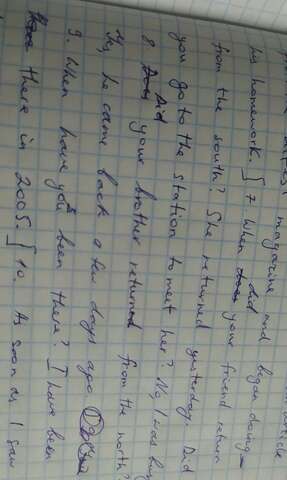 magazine and began doing
his homework. 7 When did your friend return
from the south? She returned yesterday. Did
you go to the station to meet her? No, I was busy
8 Did your brother returned from the north?
he came back a few days ago
9. When have you been there? I have been
there in 2005. 10. As soon as I saw